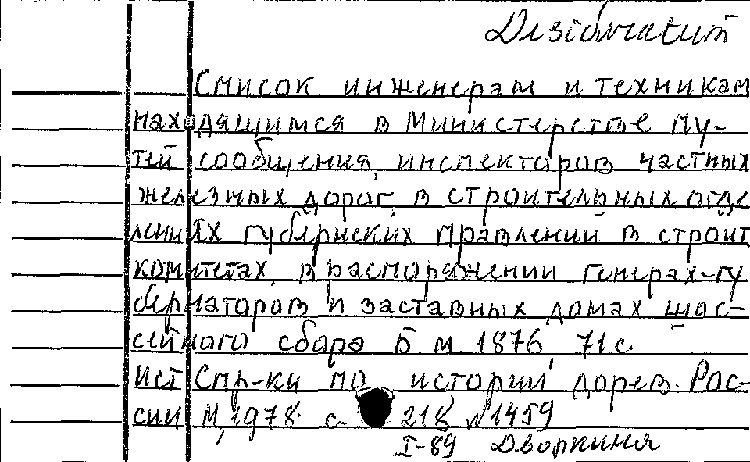 Disideratum
Список инженерам и техникам
находящимся в Министерстве пу-
тей сообщения, инспекторов частных
железных дорог, в строительных отде
лениях губернских правлений в строит
комитетах, в распоряжении генерал-гу
бернаторов и заставных домах шос-
сейного сбора Б м 1876, 71 с.
Ист Спр-ки по истории дорев. Рос-
сии М, 1978. с 218 №1459
I-89 Дворкина